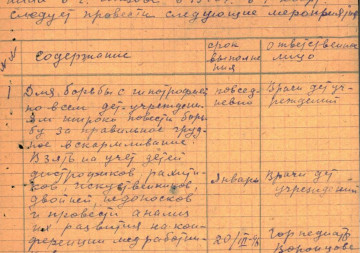 следует провести следующие мероприя
№№ содержание
срок выполне ния
ответственн лицо
1 Для борьбы с гипотрофией
по всем дет-учрежден-
ям широко повести борь-
бу за правильное груд-
ное вскармливание.
повсед невно
Врачи дет-у чреждений
Взять на учет детей
дистрофиков, рахити
ков, искуственников,
двойней, недоносков
и провести анализ
их развития на кон-
ференции медработни-
Январь
Врачи дет учреждений
20/III-
Горпедиатр